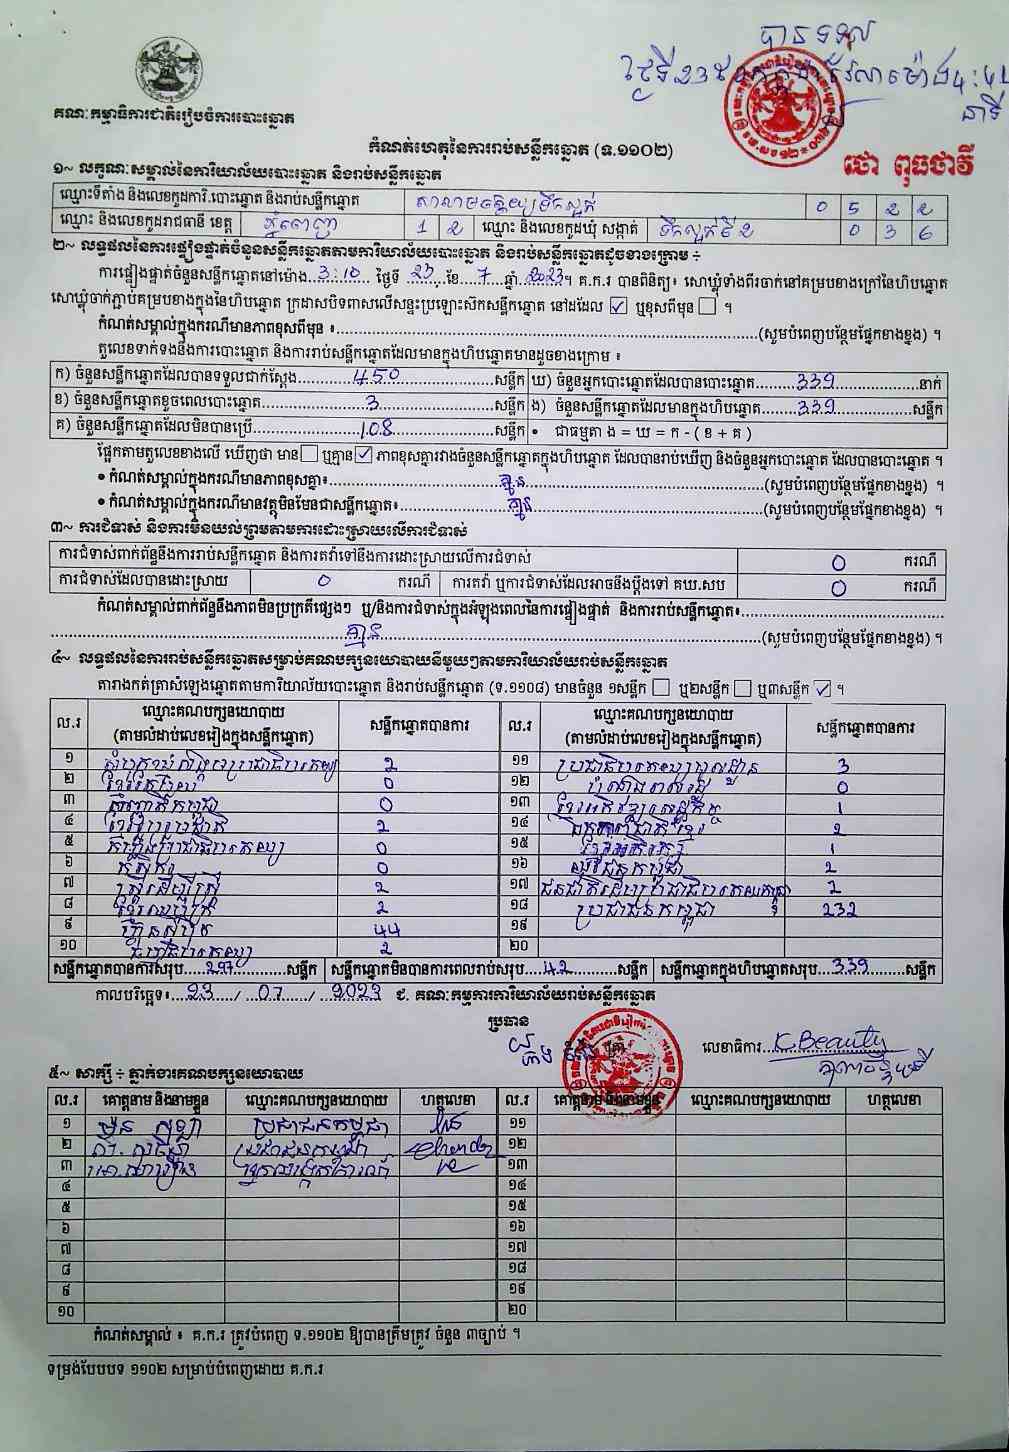 បានទទួល
ថ្ងៃទី២៣ ម៉ោង៤:៤៤
នាទី
គណៈកម្មាធិការជាតិរៀបចំការបោះឆ្នោត
កំណត់ហេតុនៃការរាប់សន្លឹកឆ្នោត (ទ.១១០២)
ថោ ពុធថាវី
១~ លក្ខណៈសម្គាល់នៃការិយាល័យបោះឆ្នោត និងរាប់សន្លឹកឆ្នោត
ឈ្មោះទីតាំង និងលេខកូដការិ.បោះឆ្នោត និងរាប់សន្លឹកឆ្នោត 0 5 2 2
ឈ្មោះ និងលេខកូដរាជធានី ខេត្ត ភ្នំពេញ 1 2 ឈ្មោះ និងលេខកូដឃុំ សង្កាត់ ទឹកល្អក់ទី2 0 3 6
២~ លទ្ធផលនៃការផ្ទៀងផ្ទាត់ចំនួនសន្លឹកឆ្នោតតាមការិយាល័យបោះឆ្នោត និងរាប់សន្លឹកឆ្នោតដូចខាងក្រោម ÷
ការផ្ទៀងផ្ទាត់ចំនួនសន្លឹកឆ្នោតនៅម៉ោង 3:10 ថ្ងៃទី 23 ខែ 7 ឆ្នាំ 2023។ គ.ក.រ បានពិនិត្យ៖ សោឃ្លុំទាំងពីរចាក់នៅគម្របខាងក្រៅនៃហិបឆ្នោត
សោឃ្លុំចាក់ភ្ជាប់គម្របខាងក្នុងនៃហិបឆ្នោត ក្រដាសបិទពាសលើសន្ទះប្រឡោះសឹកសន្លឹកឆ្នោត នៅដដែល ☑ ឬខុសពីមុន ☐ ។
កំណត់សម្គាល់ក្នុងករណីមានភាពខុសពីមុន ៖ (សូមបំពេញបន្ថែមផ្នែកខាងខ្នង) ។
តួលេខទាក់ទងនឹងការបោះឆ្នោត និងការរាប់សន្លឹកឆ្នោតដែលមានក្នុងហិបឆ្នោតមានដូចខាងក្រោម ៖
ក) ចំនួនសន្លឹកឆ្នោតដែលបានទទួលជាក់ស្តែង 450 សន្លឹក ឃ) ចំនួនអ្នកបោះឆ្នោតដែលបានបោះឆ្នោត 339 នាក់
ខ) ចំនួនសន្លឹកឆ្នោតខូចពេលបោះឆ្នោត 3 សន្លឹក ង) ចំនួនសន្លឹកឆ្នោតដែលមានក្នុងហិបឆ្នោត 339 សន្លឹក
គ) ចំនួនសន្លឹកឆ្នោតដែលមិនបានប្រើ 108 សន្លឹក • ជាធម្មតា ង = ឃ = ក - ( ខ + គ )
ផ្អែកតាមតួលេខខាងលើ ឃើញថា មាន ☐ ឬគ្មាន ☑ ភាពខុសគ្នារវាងចំនួនសន្លឹកឆ្នោតក្នុងហិបឆ្នោត ដែលបានរាប់ឃើញ និងចំនួនអ្នកបោះឆ្នោត ដែលបានបោះឆ្នោត ។
• កំណត់សម្គាល់ក្នុងករណីមានភាពខុសគ្នា៖ គ្មាន (សូមបំពេញបន្ថែមផ្នែកខាងខ្នង) ។
• កំណត់សម្គាល់ក្នុងករណីមានវត្ថុមិនមែនជាសន្លឹកឆ្នោត៖ គ្មាន (សូមបំពេញបន្ថែមផ្នែកខាងខ្នង) ។
៣~ ការជំទាស់ និងការមិនយល់ព្រមតាមការដោះស្រាយលើការជំទាស់
ការជំទាស់ពាក់ព័ន្ធនឹងការរាប់សន្លឹកឆ្នោត និងការតវ៉ាទៅនឹងការដោះស្រាយលើការជំទាស់ 0 ករណី
ការជំទាស់ដែលបានដោះស្រាយ 0 ករណី ការតវ៉ា ឬការជំទាស់ដែលអាចនឹងប្តឹងទៅ គឃ.សប 0 ករណី
កំណត់សម្គាល់ពាក់ព័ន្ធនឹងភាពមិនប្រក្រតីផ្សេងៗ ឬ/និងការជំទាស់ក្នុងអំឡុងពេលនៃការផ្ទៀងផ្ទាត់ និងការរាប់សន្លឹកឆ្នោត៖
គ្មាន (សូមបំពេញបន្ថែមផ្នែកខាងខ្នង) ។
៤~ លទ្ធផលនៃការរាប់សន្លឹកឆ្នោតសម្រាប់គណបក្សនយោបាយនីមួយៗតាមការិយាល័យរាប់សន្លឹកឆ្នោត
តារាងកត់ត្រាសំឡេងឆ្នោតតាមការិយាល័យបោះឆ្នោត និងរាប់សន្លឹកឆ្នោត (ទ.១១០៨) មានចំនួន ១សន្លឹក ☐ ឬ២សន្លឹក ☐ ឬ៣សន្លឹក ☑ ។
ល.រ ឈ្មោះគណបក្សនយោបាយ (តាមលំដាប់លេខរៀងក្នុងសន្លឹកឆ្នោត) សន្លឹកឆ្នោតបានការ ល.រ ឈ្មោះគណបក្សនយោបាយ (តាមលំដាប់លេខរៀងក្នុងសន្លឹកឆ្នោត) សន្លឹកឆ្នោតបានការ
១ សំបុកឃ្មុំសង្គមប្រជាធិបតេយ្យ 2 ១១ ប្រជាធិបតេយ្យមូលដ្ឋាន 3
២ 0 ១២ 0
៣ 0 ១៣ ខ្មែរអភិវឌ្ឍន៍សេដ្ឋកិច្ច 1
៤ ខ្មែររួបរួមជាតិ 2 ១៤ ឯកភាពជាតិខ្មែរ 2
៥ កម្លាំងប្រជាធិបតេយ្យ 0 ១៥ ខ្មែរអភិរក្ស 1
៦ កសិករ 0 ១៦ យុវជនកម្ពុជា 2
៧ ស្ត្រីដើម្បីស្ត្រី 2 ១៧ ជនជាតិដើមប្រជាធិបតេយ្យកម្ពុជា 2
៨ ខ្មែរឈប់ក្រ 2 ១៨ ប្រជាជនកម្ពុជា 232
៩ ហ្វ៊ុនស៊ិនប៉ិច 44 ១៩
១០ ធម្មាធិបតេយ្យ 2 ២០
សន្លឹកឆ្នោតបានការសរុប 297 សន្លឹក សន្លឹកឆ្នោតមិនបានការពេលរាប់សរុប 42 សន្លឹក សន្លឹកឆ្នោតក្នុងហិបឆ្នោតសរុប 339 សន្លឹក
កាលបរិច្ឆេទ៖ 23 / 07 / 2023 ជ. គណៈកម្មការការិយាល័យរាប់សន្លឹកឆ្នោត
ប្រធាន
លេខាធិការ K.Beauty
៥~ សាក្សី ÷ ភ្នាក់ងារគណបក្សនយោបាយ
ល.រ គោត្តនាម និងនាមខ្លួន ឈ្មោះគណបក្សនយោបាយ ហត្ថលេខា ល.រ គោត្តនាម និងនាមខ្លួន ឈ្មោះគណបក្សនយោបាយ ហត្ថលេខា
១ ប្រជាជនកម្ពុជា ១១
២ ប្រជាជនកម្ពុជា ១២
៣ អ្នកសង្កេតការណ៍ ១៣
៤ ១៤
៥ ១៥
៦ ១៦
៧ ១៧
៨ ១៨
៩ ១៩
១០ ២០
កំណត់សម្គាល់ ៖ គ.ក.រ ត្រូវបំពេញ ទ.១១០២ ឱ្យបានត្រឹមត្រូវ ចំនួន ៣ច្បាប់ ។
ទម្រង់បែបបទ ១១០២ សម្រាប់បំពេញដោយ គ.ក.រ